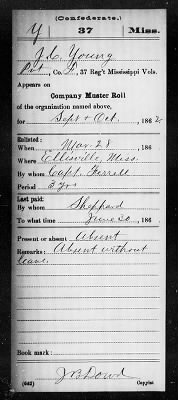 (Confederate.)
Y 37 Miss.
J. C. Young
Pvt, Co. , 37 Reg't Mississippi Vols.
Appears on
Company Muster Roll
of the organization named above,
for Sept & Oct, 1862
Enlisted:
When Mar. 28, 186
Where Ellisville, Miss.
By whom Capt. Terrell
Period 3 yrs
Last paid:
By whom Sheppard
To what time June 30, 186
Present or absent Absent
Remarks: Absent without
leave.
Book mark:
J. B. Dowd
(642) Copyist.